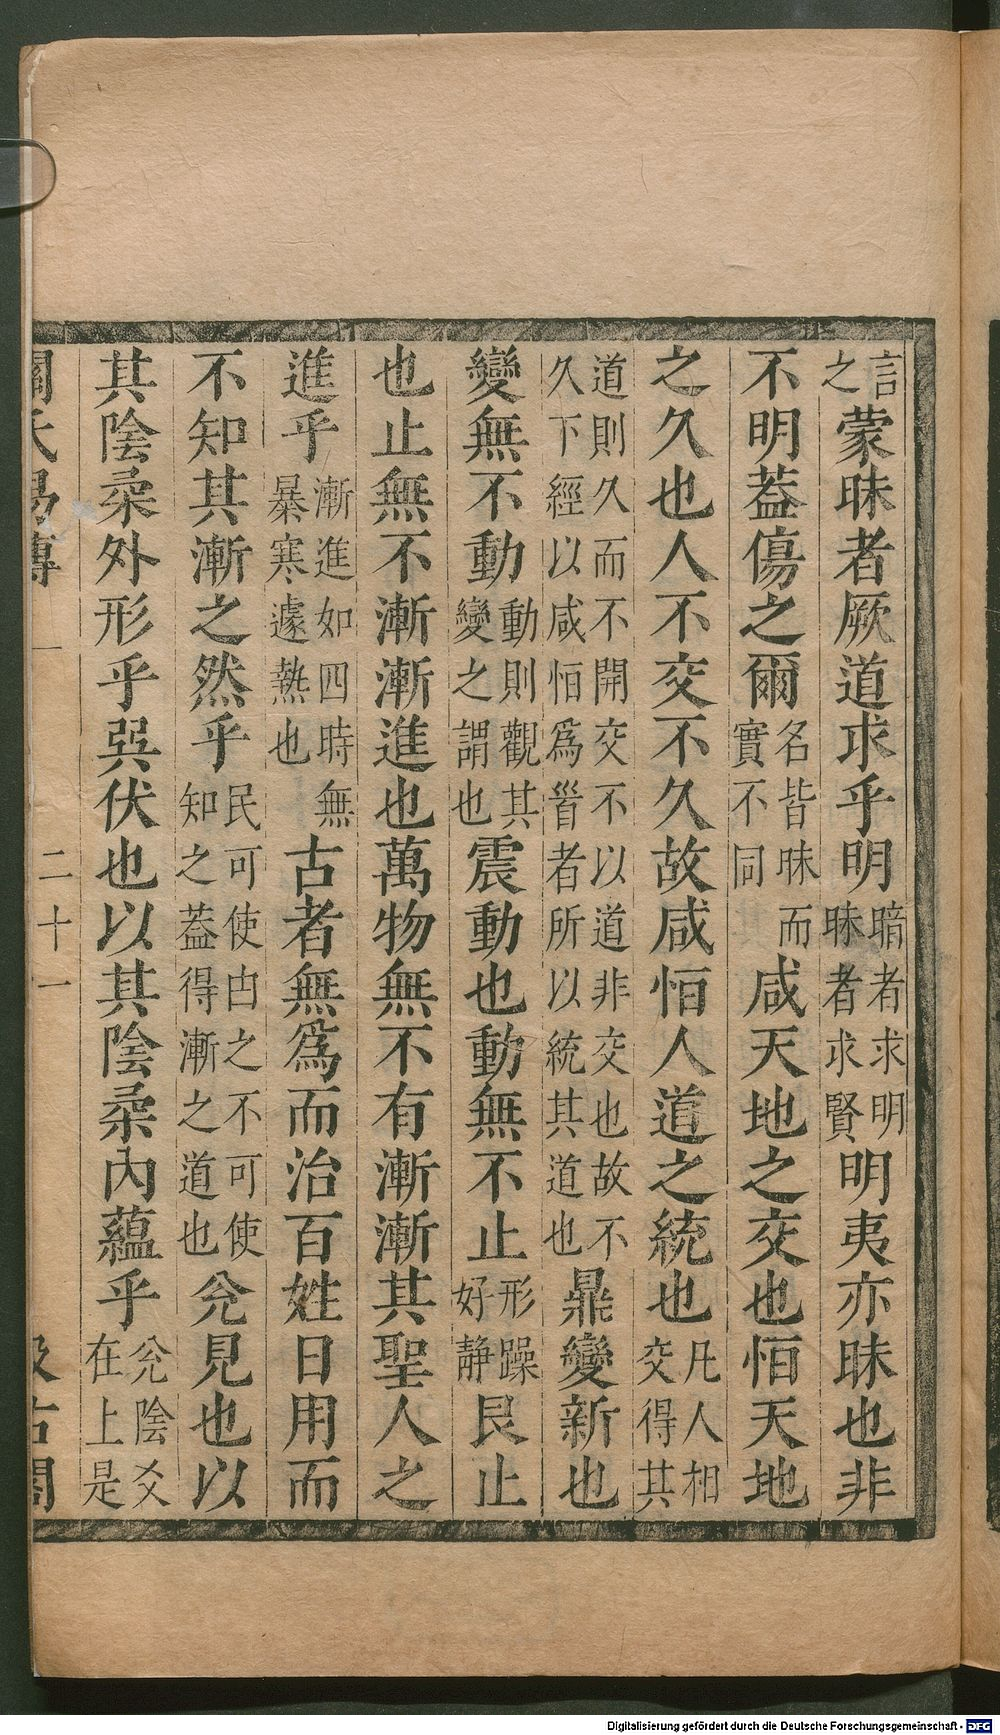 言之蒙昧者厥道求乎明暗者求明昧者求賢明夷亦昧也非
不明葢傷之爾名皆昧而實不同咸天地之交也恒天地
之久也人不交不久故咸恒人道之統也凡人相交得其
道則久而不開交不以道非交也故不久下經以咸恒爲首者所以統其道也鼎變新也
變無不動動則觀其變之謂也震動也動無不止形躁好静艮止
也止無不漸漸進也萬物無不有漸漸其聖人之
進乎漸進如四時無暴寒遽熱也古者無爲而治百姓日用而
不知其漸之然乎民可使由之不可使知之葢得漸之道也兊見也以
其陰柔外形乎巽伏也以其陰柔內蘊乎兊陰爻在上是
關氏易傳 二十一 汲古閣
Digitalisierung gefördert durch die Deutsche Forschungsgemeinschaft - DFG